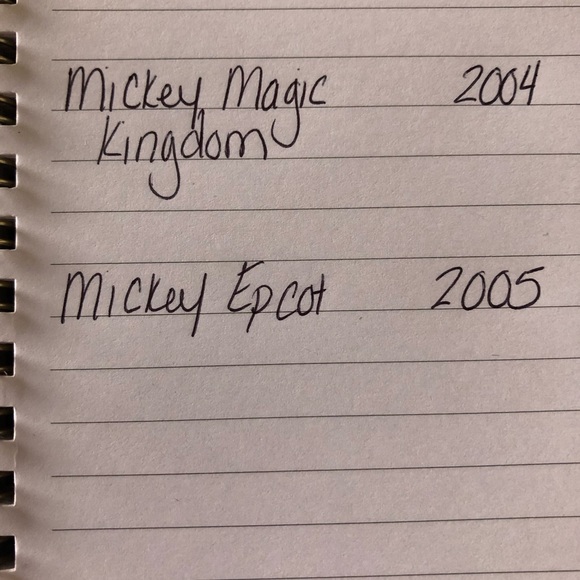 Mickey Magic 2004
Kingdom
Mickey Epcot 2005